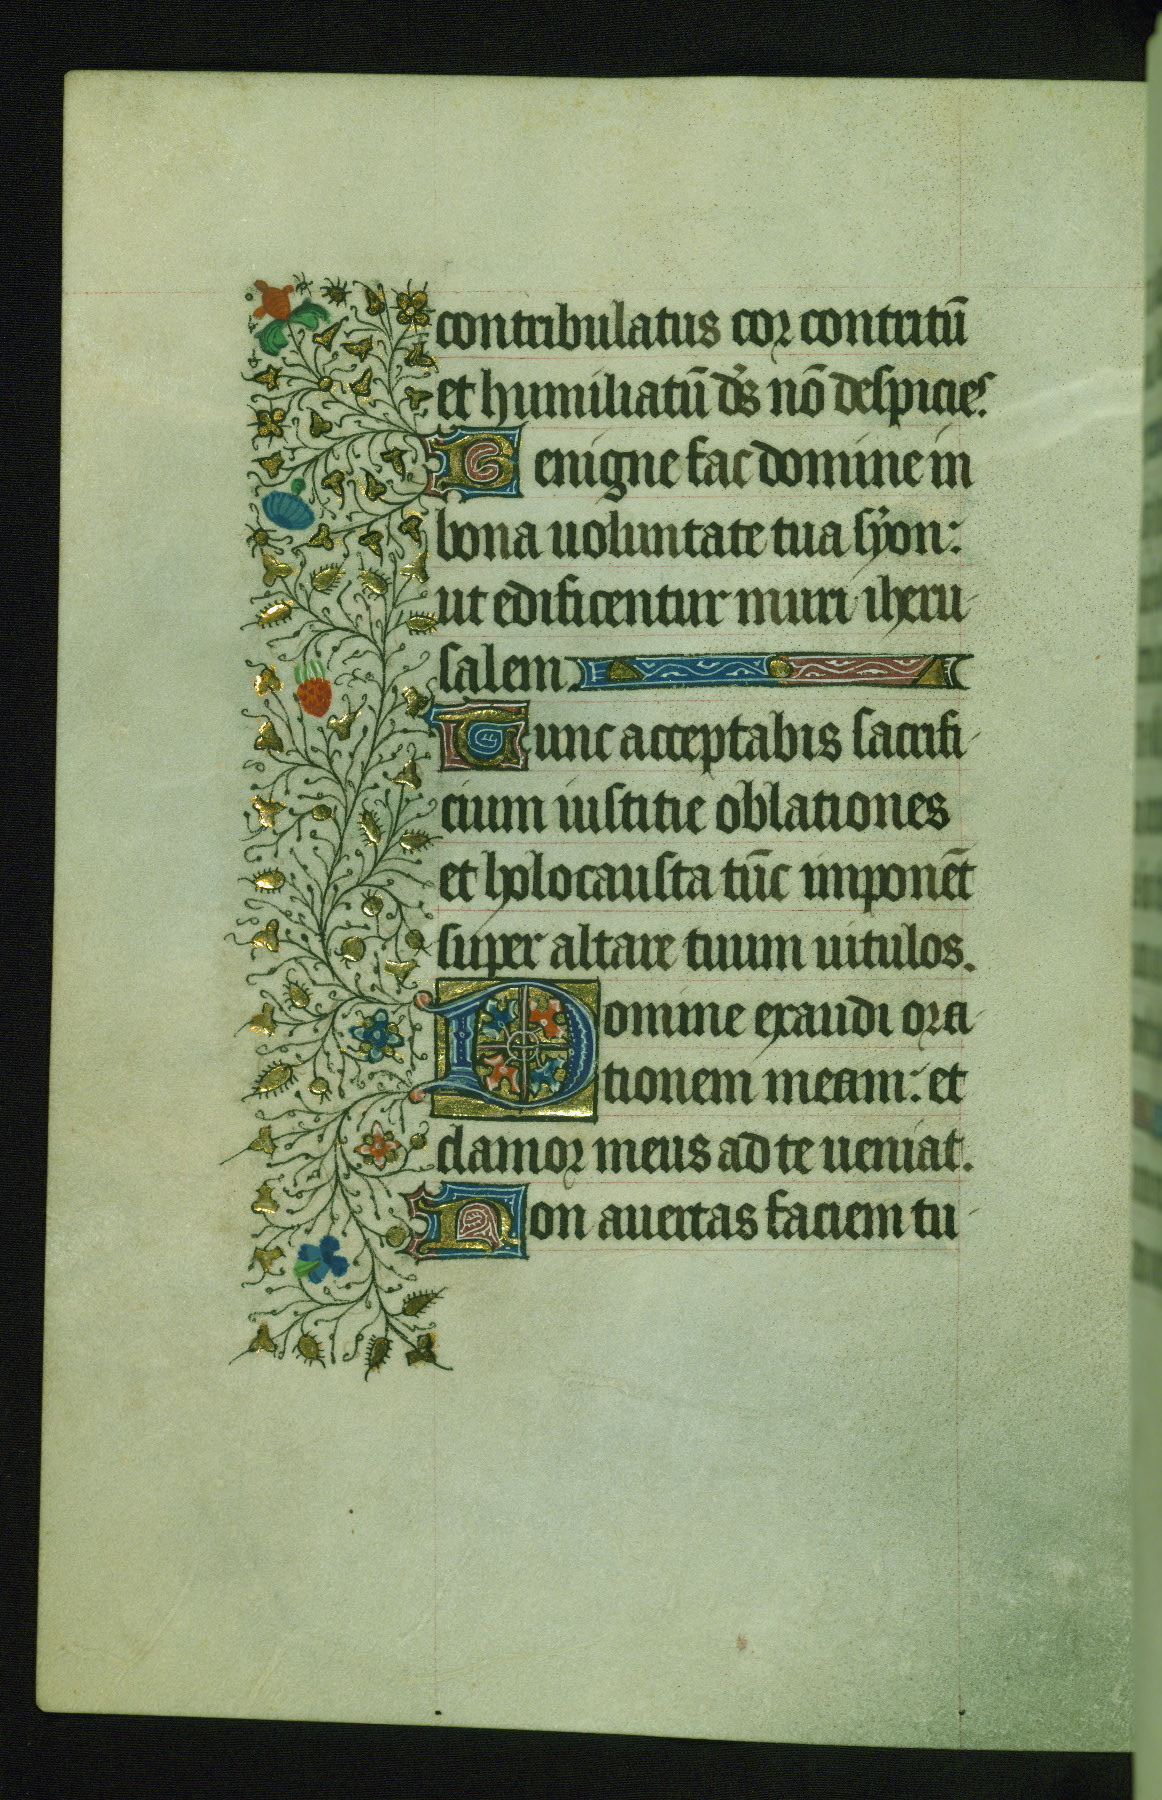 contribulatus cor contritū
et humiliatū ds̄ nō despicies.
Benigne fac domine in
bona uoluntate tua syon:
ut edificentur muri iheru-
salem.
Tunc acceptabis sacrifi-
cium iustitie oblationes
et holocausta tūc imponēt
super altare tuum uitulos.
Domine exaudi ora-
tionem meam: et
clamor meus ad te ueniat.
Non auertas faciem tu-